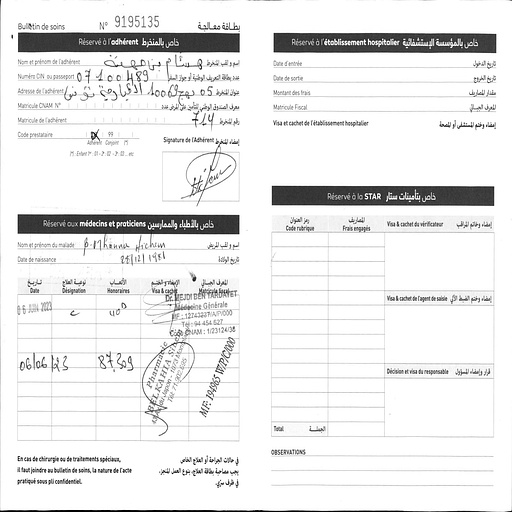 Bulletin de soins N° 9195135 بطاقة معالجة
Réservé à l'adhérent خاص بالمنخرط
Nom et prénom de l'adhérent هشام بن مهنية إسم و لقب المنخرط
Numéro CIN ou passeport 07100489 عدد بطاقة التعريف الوطنية أو جواز السفر
Adresse de l'adhérent 05 نهج 10069 تونس عنوان المنخرط
Matricule CNAM N°
Matricule de l'adhérent 714 رقم المنخرط
Code prestataire 99
Adhérent Conjoint
Signature de l'Adhérent إمضاء المنخرط
Réservé aux médecins et praticiens خاص بالأطباء والممارسين
Nom et prénom du malade Hichem إسم و لقب المريض
Date de naissance 1981 تاريخ الولادة
تاريخ نوعية العلاج الأتعاب الإمضاء والختم المعرف الجبائي
Date Désignation Honoraires Visa & cachet Matricule fiscal
06 JUIN 2023 c 40D
Dr. MEJDI BEN TARDAYET
Médecine Générale
Tél : 94 454 627
CNAM : 1/23124/38
06/06/23 87,309
Pharmacie
BELKAHIA
MF: 194965 W/P/C/000
En cas de chirurgie ou de traitements spéciaux,
il faut joindre au bulletin de soins, la nature de l'acte
pratiqué sous pli confidentiel.
في حالات الجراحة أو العلاج الخاص
يجب مصاحبة بطاقة العلاج، بنوع العمل المنجز،
في ظرف سري.
Réservé à l'établissement hospitalier خاص بالمؤسسة الإستشفائية
Date d'entrée تاريخ الدخول
Date de sortie تاريخ الخروج
Montant des frais مقدار المصاريف
Matricule Fiscal المعرف الجبائي
Visa et cachet de l'établissement hospitalier إمضاء وختم المستشفى أو المصحة
Réservé à la STAR خاص بتأمينات ستار
رمز العنوان المصاريف
Code rubrique Frais engagés
Visa & cachet du vérificateur إمضاء وختم المراقب
Visa & cachet de l'agent de saisie إمضاء وختم الضبط الآلي
Décision et visa du responsable قرار وإمضاء المسؤول
Total الجملة
OBSERVATIONS